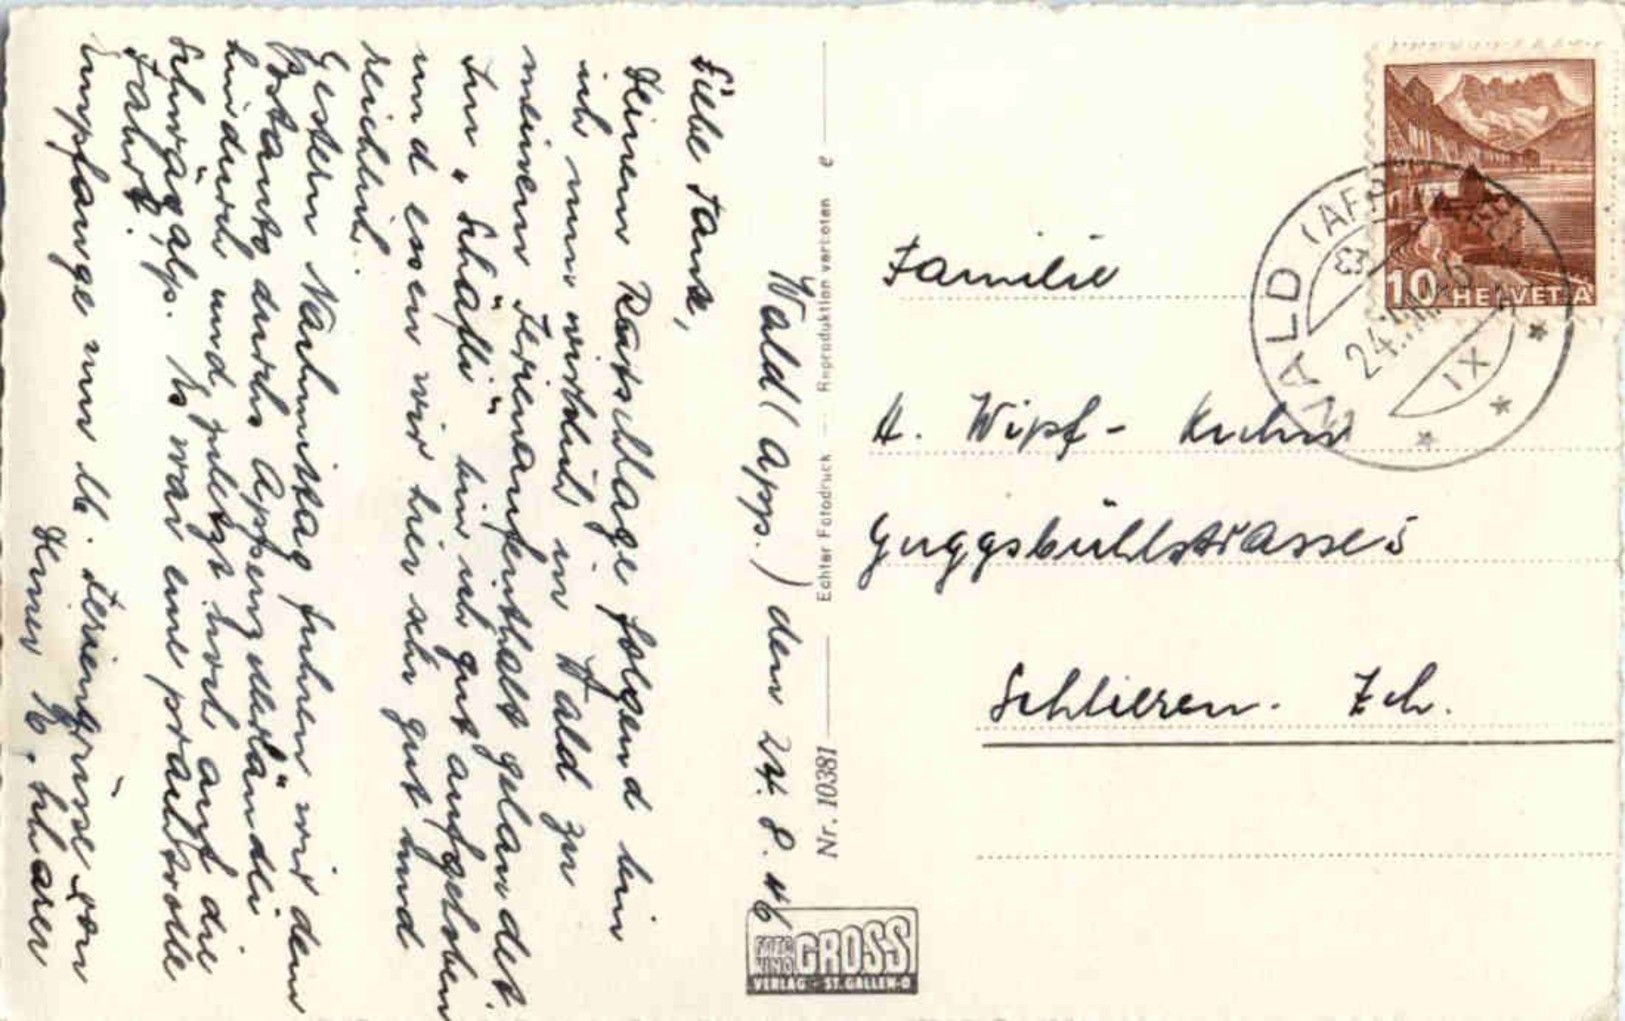 Wald (App.) den 24. 8. 46
Liebe Tante,
Deinem Ratschlage folgend bin
ich nun wirklich in Wald zu
meinem Ferienaufenthalt gelandet.
Im „Schäfli" bin ich gut aufgehoben
und essen wir hier sehr gut und
reichlich.
Gestern Nachmittag fuhren wir dem
Postauto durchs Appenzellerländli
hindurch und zuletzt hoch auf die
Schwägalp. Es war eine prachtvolle
Fahrt.
Empfange nun lb. Feriengrüsse von
Deiner
Familie
H. Wipf - Kuhn
Guggsbühlstrasse 5
Schlieren. Zch.
Nr. 10381 Echter Fotodruck — Reproduktion verboten e
FOTO GROSS
VERLAG - ST. GALLEN-O
10 HELVETIA
WALD (APPENZELL)
24.VIII.46
IX